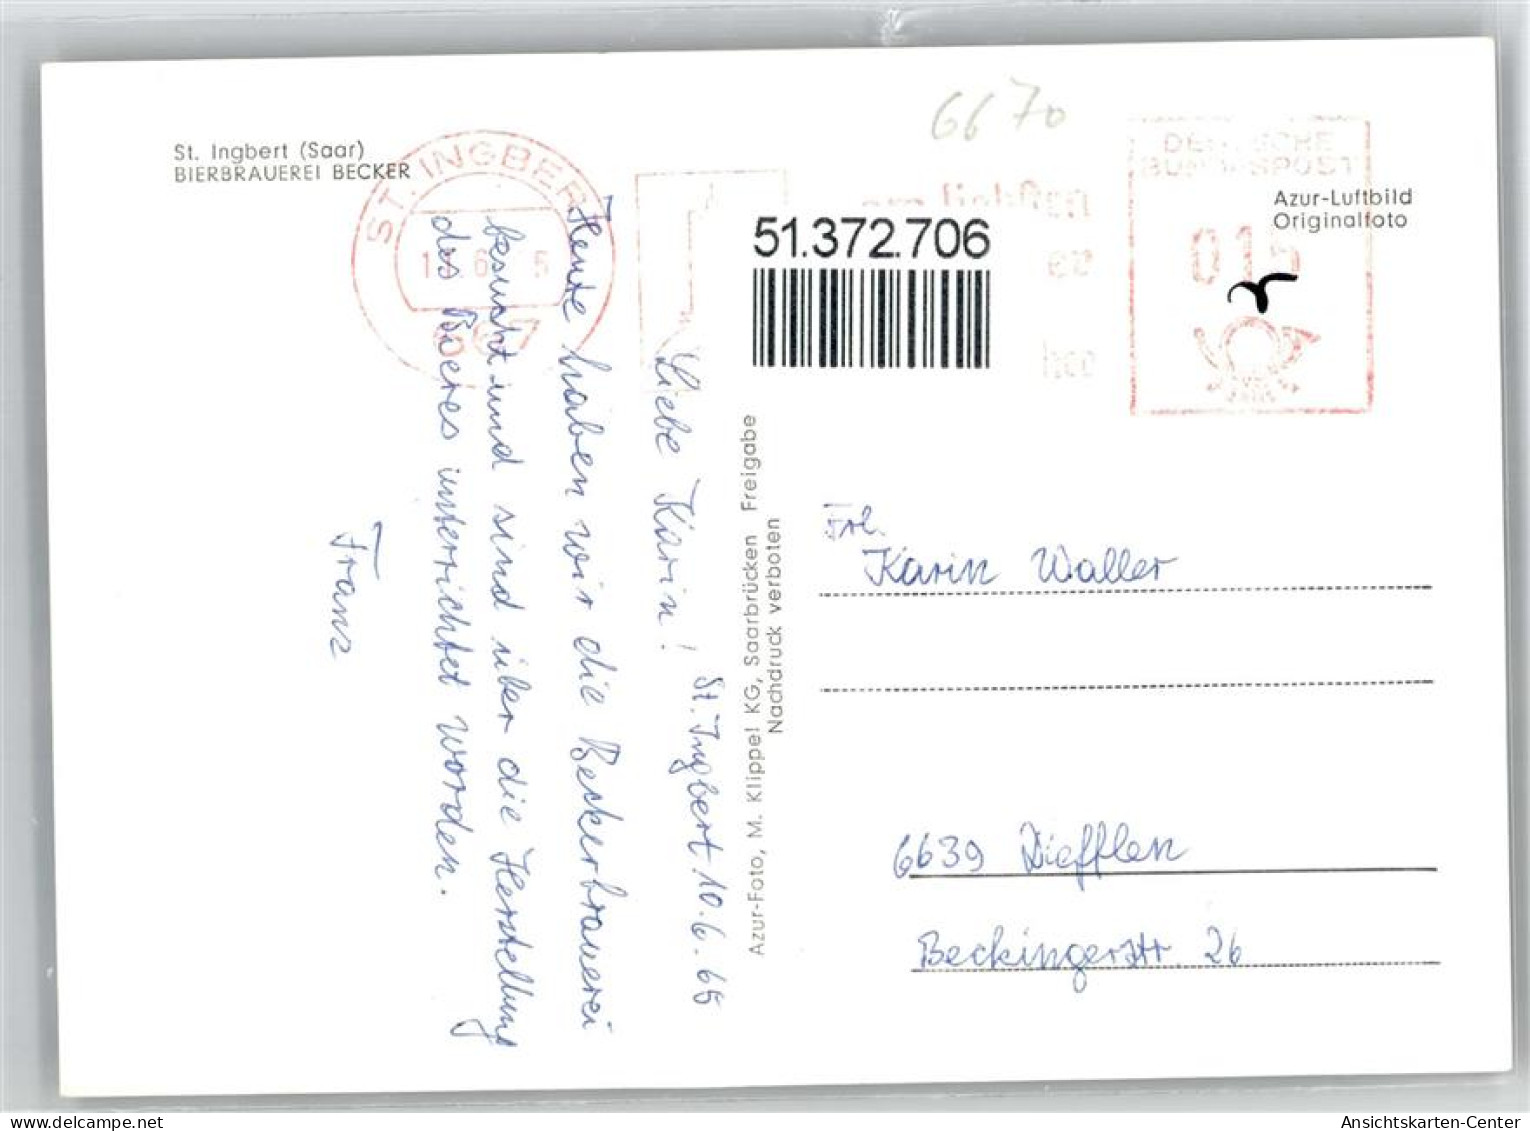 St. Ingbert (Saar)
BIERBRAUEREI BECKER
ST. INGBERT
6670
DEUTSCHE
BUNDESPOST
015
Azur-Luftbild
Originalfoto
am liebsten
51.372.706
St. Ingbert 10.6.65
Liebe Karin!
Heute haben wir die Beckerbrauerei
besucht und sind über die Herstellung
des Bieres unterrichtet worden.
Franz
Azur-Foto, M. Klippel KG, Saarbrücken Freigabe
Nachdruck verboten
Frl.
Karin Waller
6639 Diefflen
Beckingerstr. 26
delcampe.net
Ansichtskarten-Center